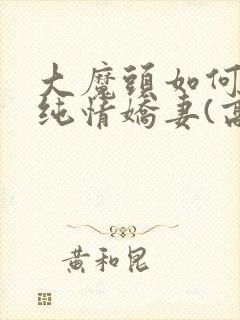 大魔頭如何
純情嬌妻(高
黃和昆